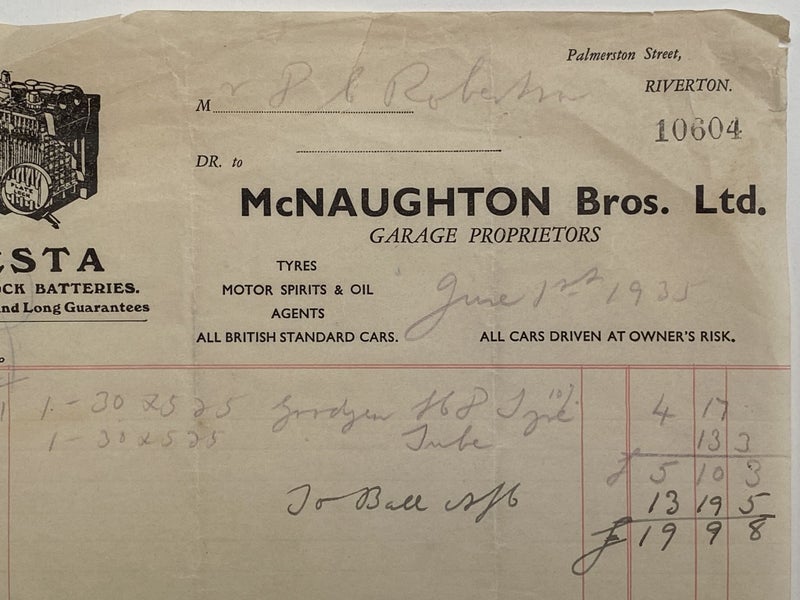 Palmerston Street,
RIVERTON.
Mr P C Robertson
10604
DR. to
McNAUGHTON Bros. Ltd.
GARAGE PROPRIETORS
STA
CK BATTERIES.
nd Long Guarantees
TYRES
MOTOR SPIRITS & OIL
AGENTS
ALL BRITISH STANDARD CARS.
June 1st 1935
ALL CARS DRIVEN AT OWNER'S RISK.
1 - 30 x 5 25 Goodyear Tyre 4 17
1 - 30 x 5 25 Tube 13 3
£ 5 10 3
To Ball 13 19 5
£ 19 9 8